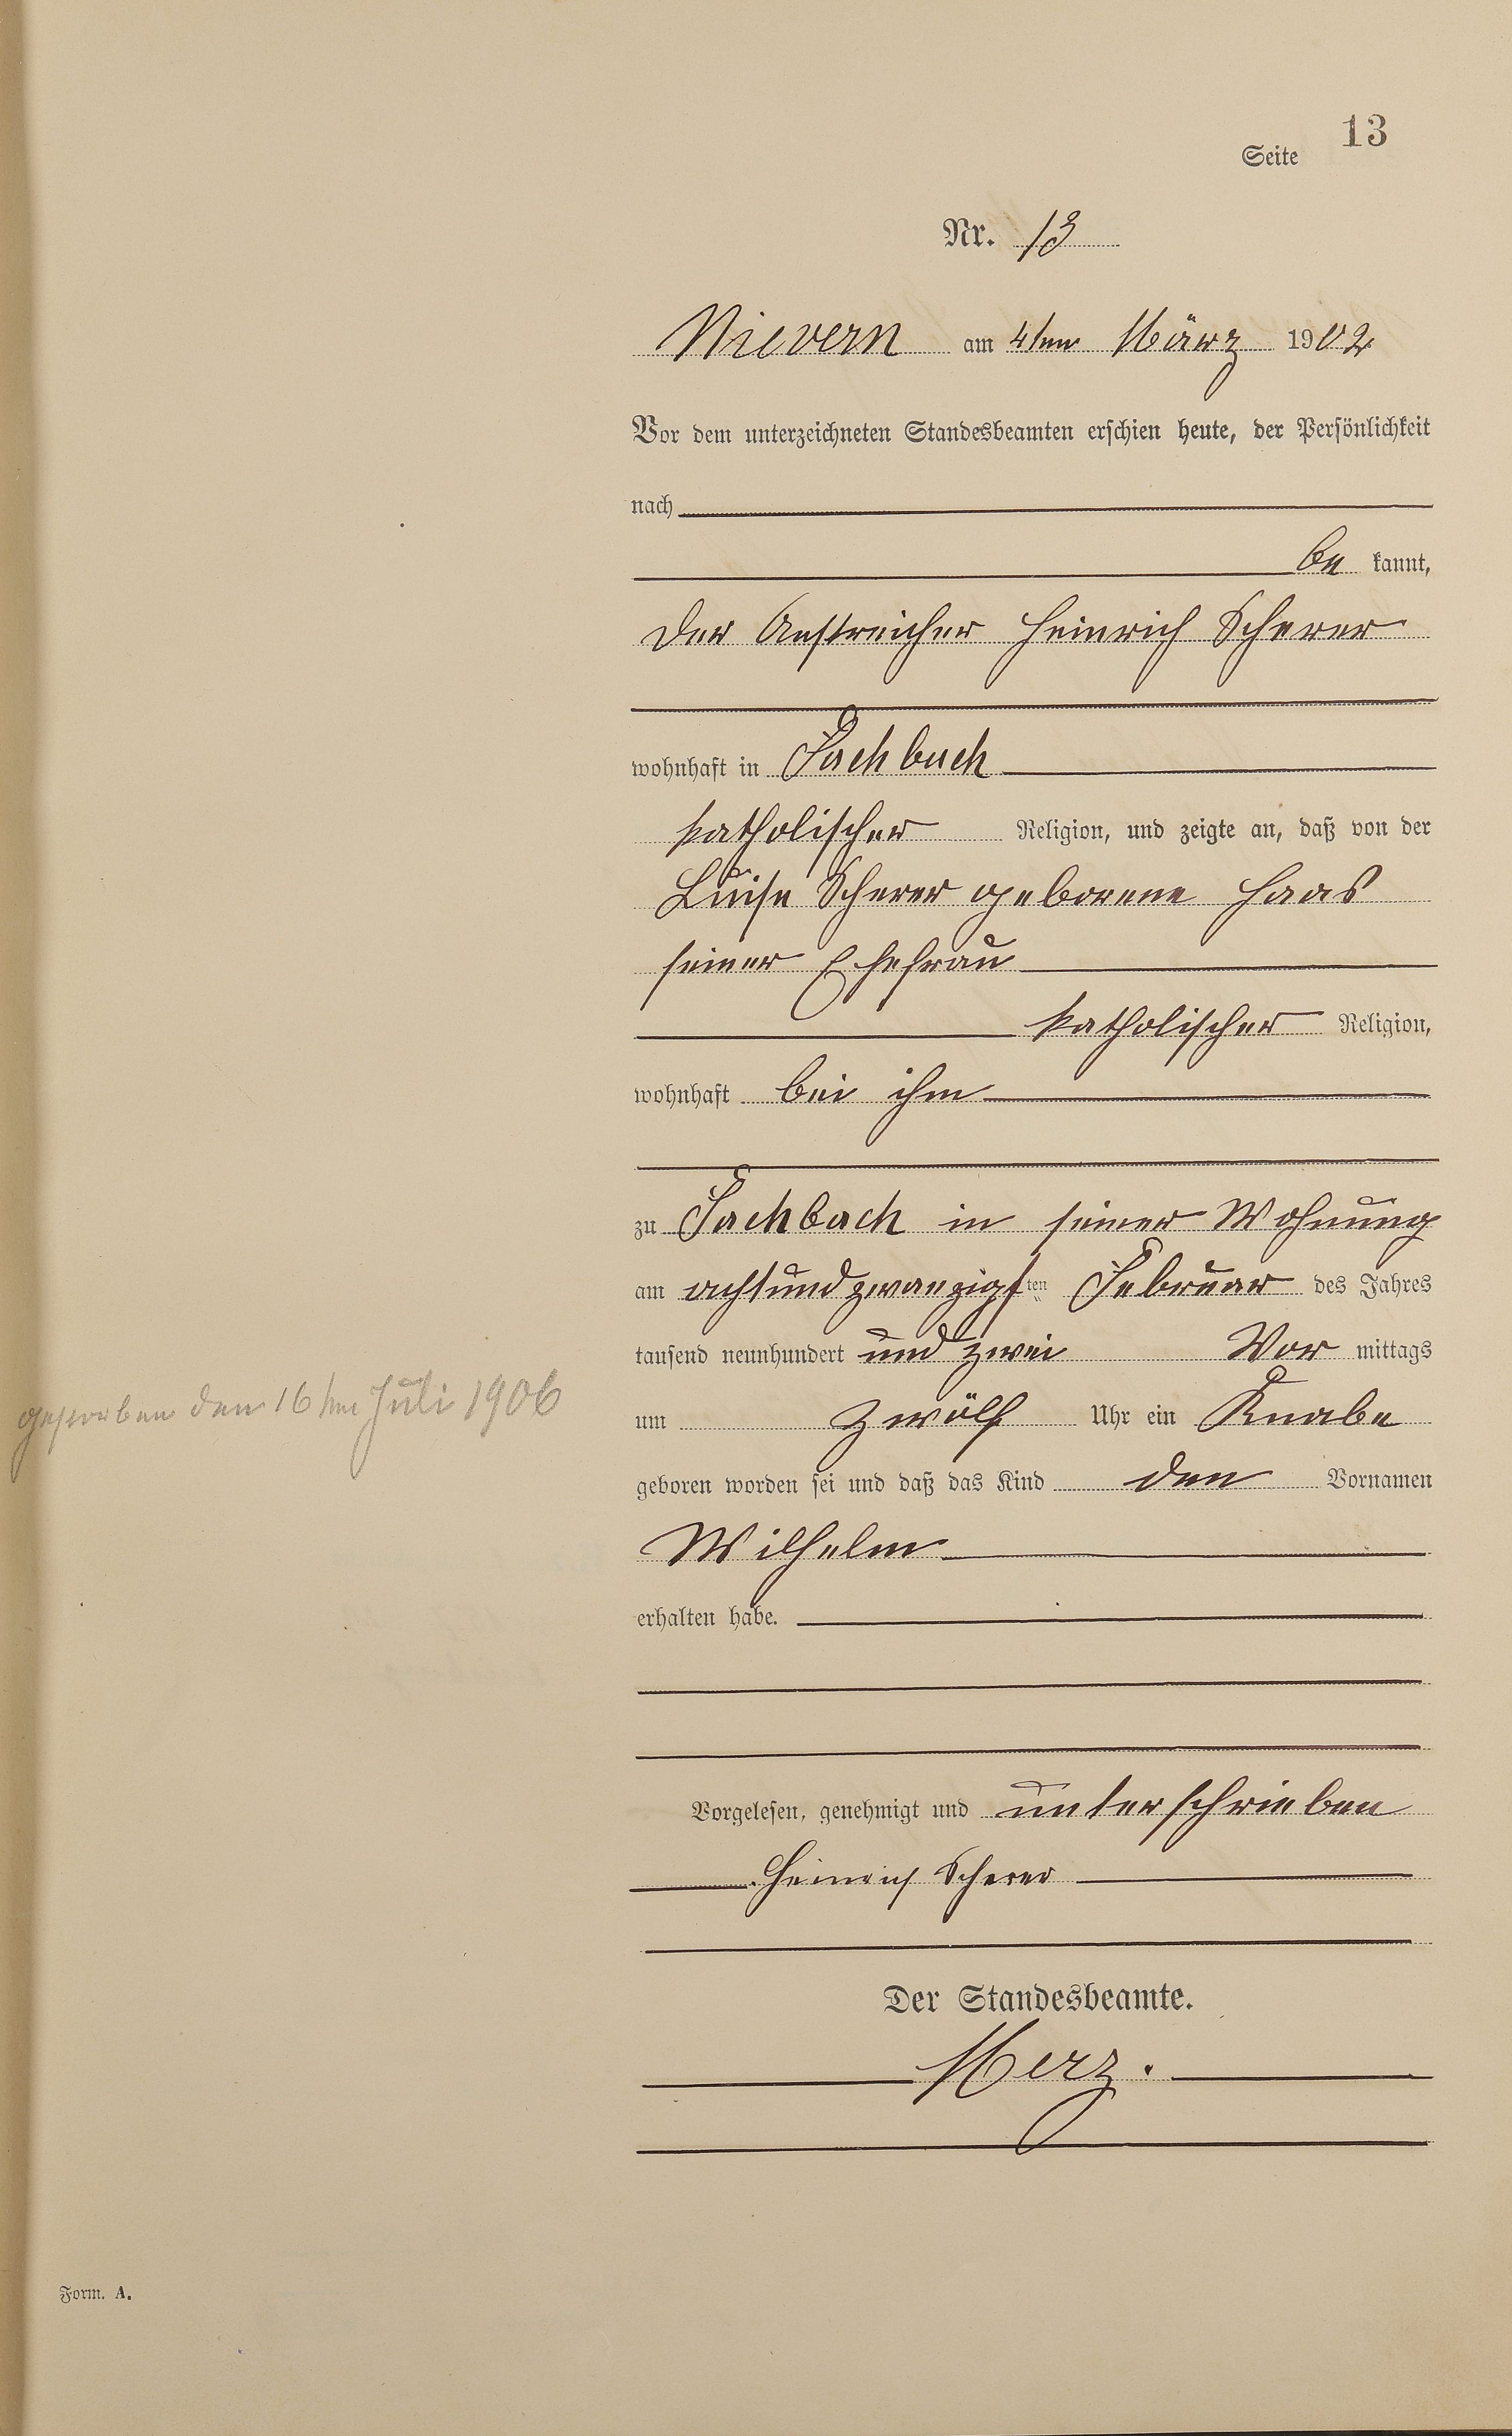 Seite 13
Nr. 13
Nievern am 4ten März 1902
Vor dem unterzeichneten Standesbeamten erschien heute, der Persönlichkeit
nach
be kannt,
der Anstreicher Heinrich Scherer
wohnhaft in Fachbach
katholischer Religion, und zeigte an, daß von der
Luise Scherer geborene Haas
seiner Ehefrau
katholischer Religion,
wohnhaft bei ihm
zu Fachbach in seiner Wohnung
am achtundzwanzigsten Februar des Jahres
tausend neunhundert und zwei Vor mittags
um zwölf Uhr ein Knabe
geboren worden sei und daß das Kind den Vornamen
Wilhelm
erhalten habe.
gestorben den 16ten Juli 1906
Vorgelesen, genehmigt und unterschrieben
Heinrich Scherer
Der Standesbeamte.
Merz.
Form. A.